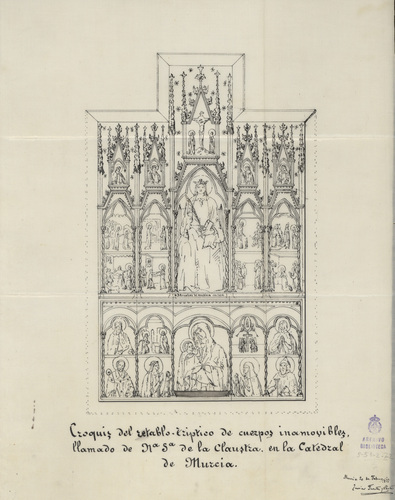 Croquis del retablo-tríptico de cuerpos inamovibles,
llamado de Nª Sª de la Claustra, en la Catedral
de Murcia.